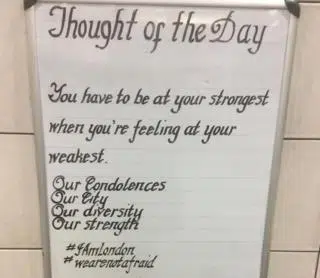 Thought of the Day
You have to be at your strongest
when you're feeling at your
weakest.
Our Condolences
Our City
Our diversity
Our strength
#IAmLondon
#wearenotafraid